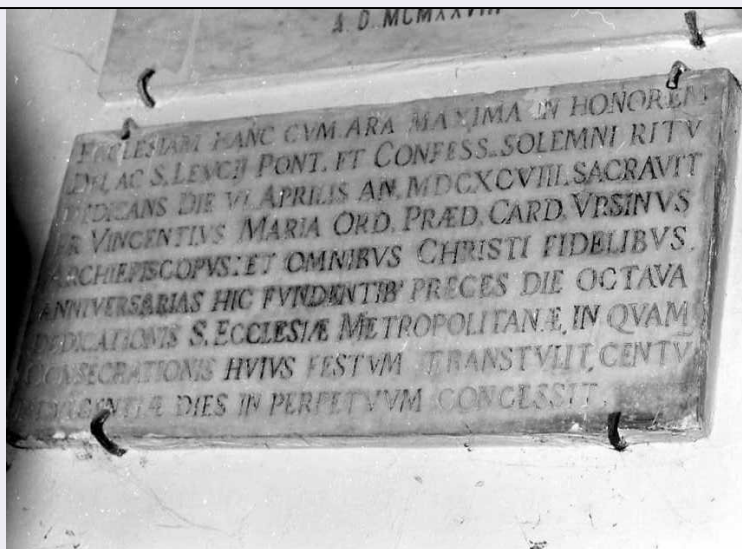 A. D. MCMXXVIII
ECCLESIAM HANC CVM ARA MAXIMA IN HONOREM
DEI, AC S. LEVCIJ PONT. ET CONFESS. SOLEMNI RITV
DEDICANS DIE VI. APRILIS AN. MDCXCVIII. SACRAVIT
FR VINCENTIVS MARIA ORD. PRÆD. CARD. VRSINVS
ARCHIEPISCOPVS: ET OMNIBVS CHRISTI FIDELIBVS,
ANNIVERSARIAS HIC FVNDENTIB' PRECES DIE OCTAVA
DEDICATIONIS S. ECCLESIÆ METROPOLITANÆ, IN QVAM
CONSECRATIONIS HVIVS FESTVM TRANSTVLIT, CENTV
INDVLGENTIÆ DIES IN PERPETVVM CONCESSIT.